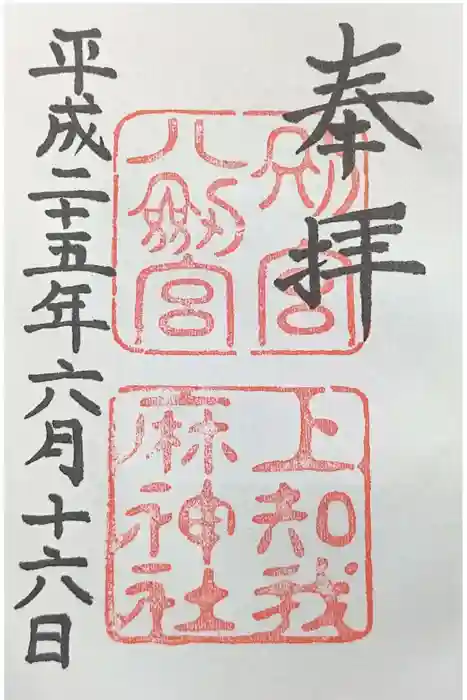 奉拝
別宮
八剱宮
上知我
麻神社
平成二十五年六月十六日